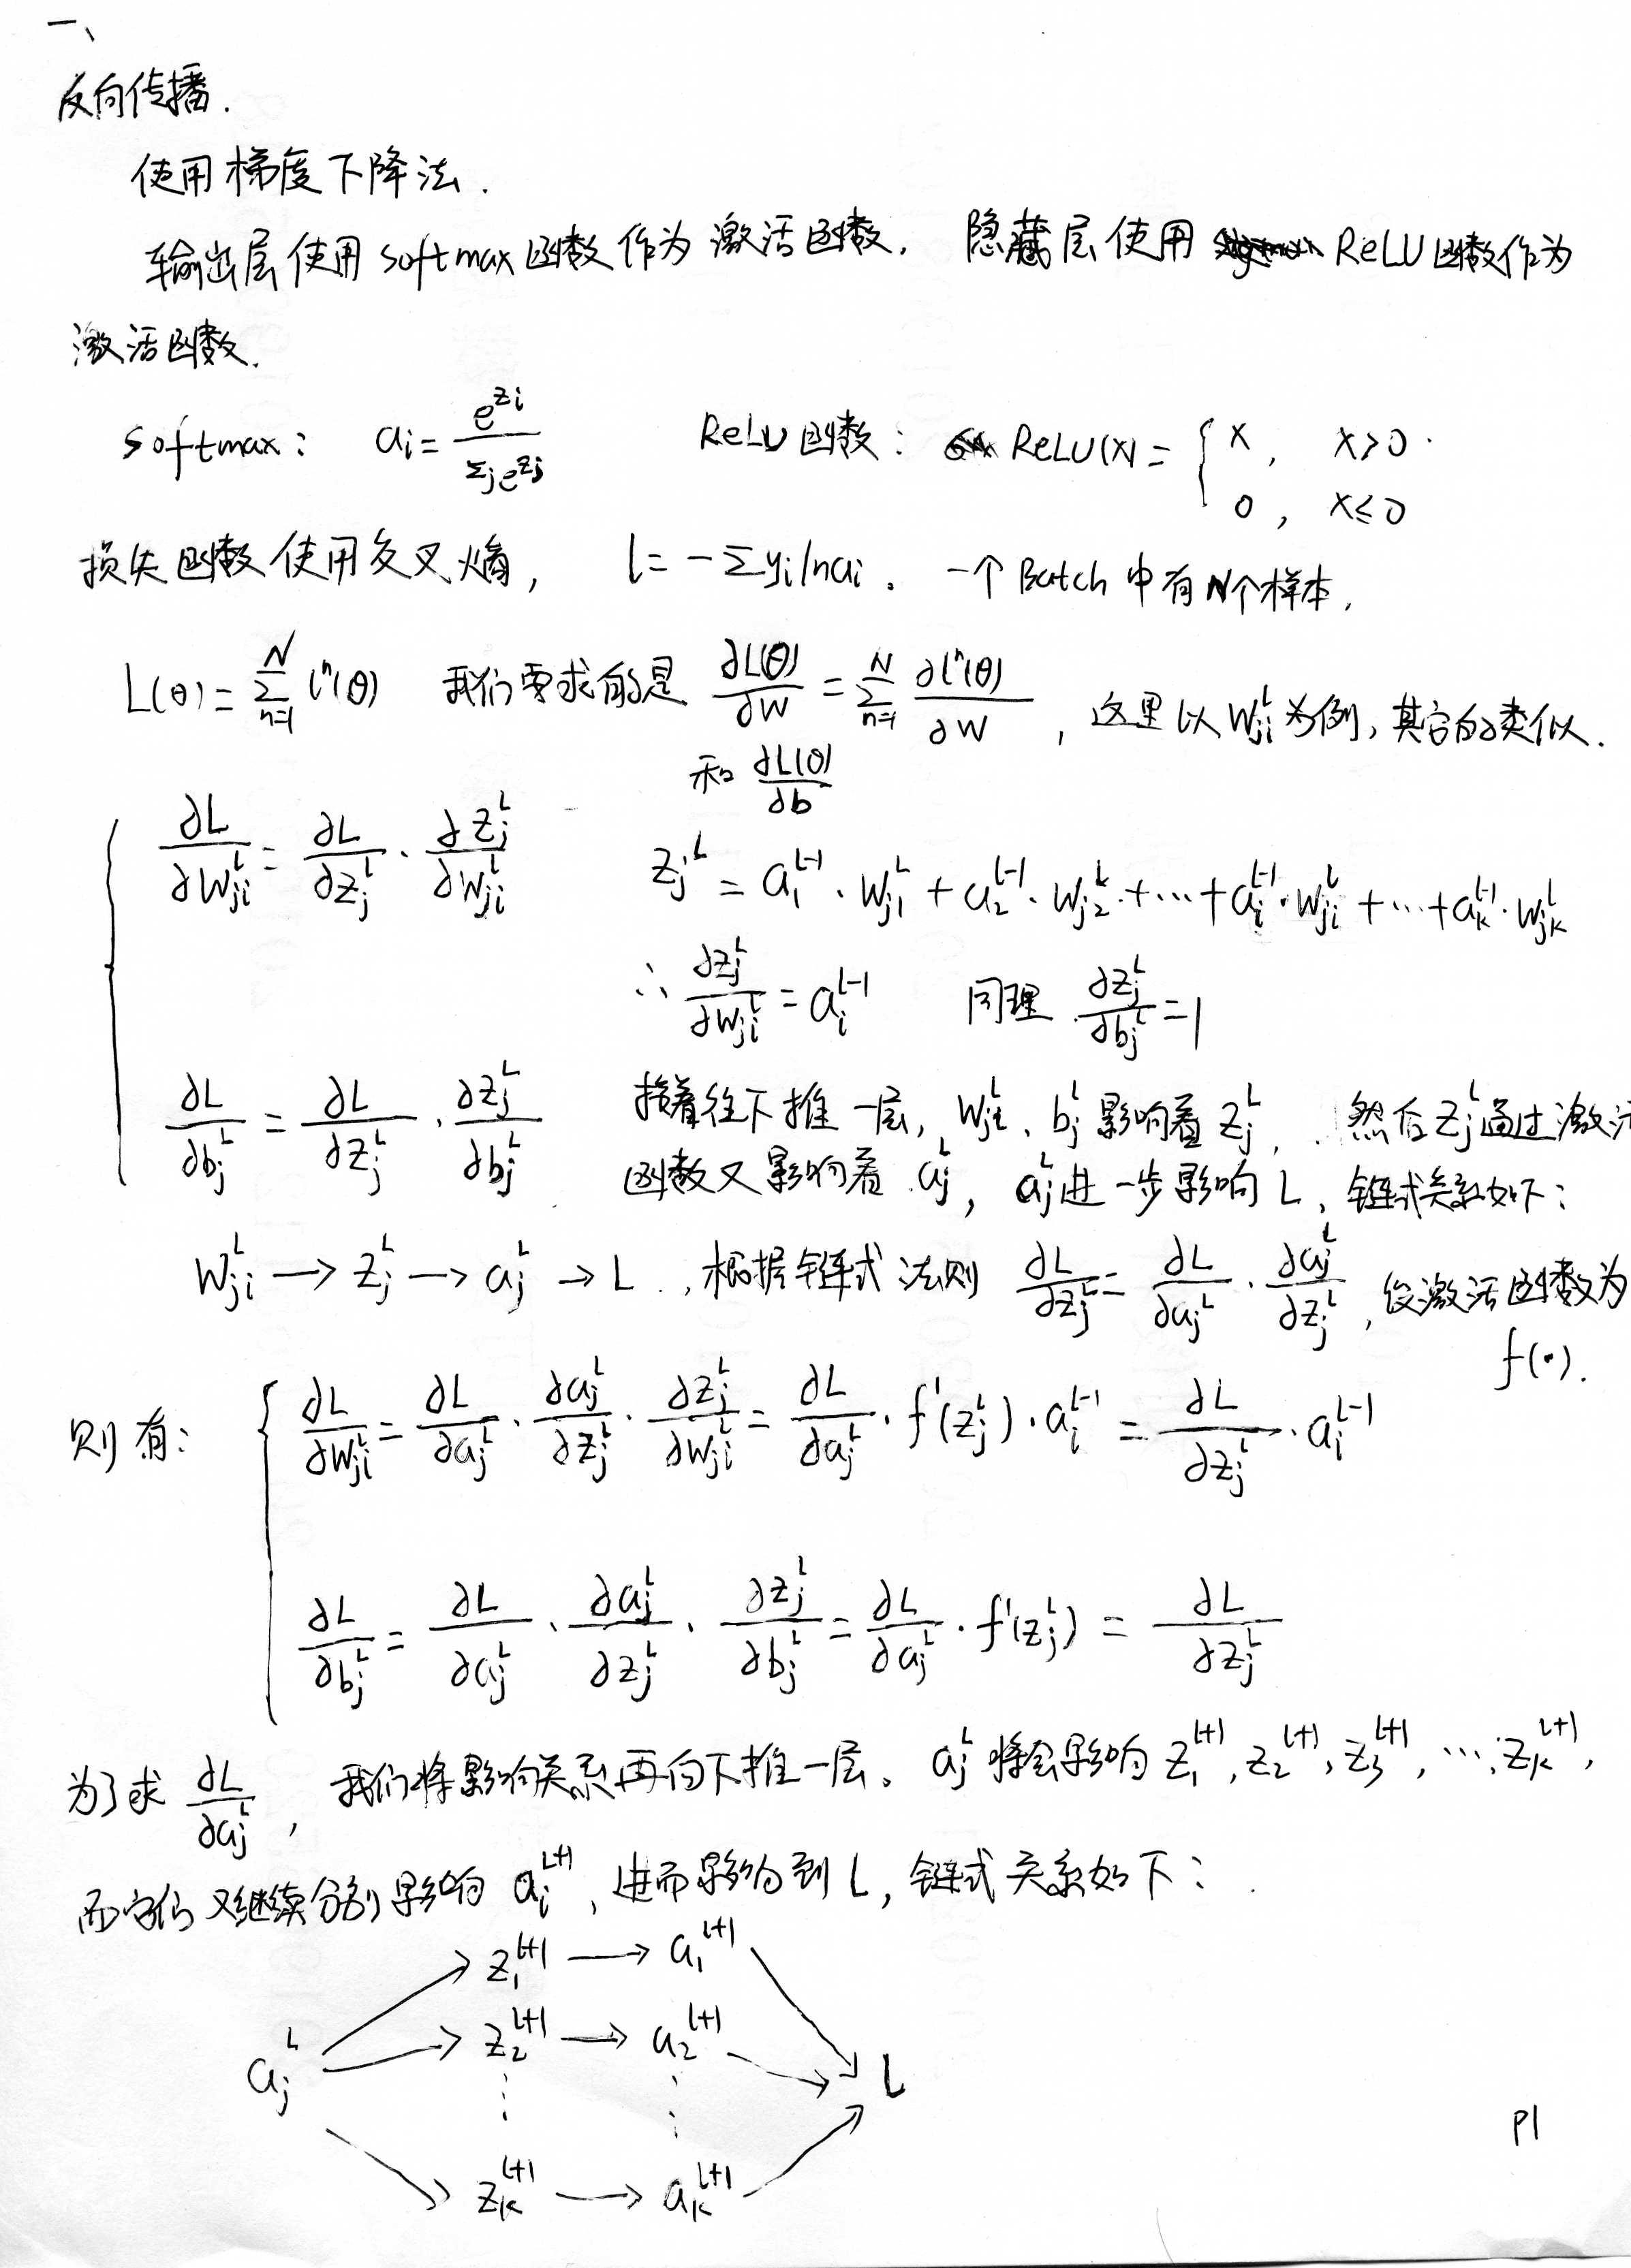 一、
反向传播.
使用梯度下降法.
输出层使用softmax函数作为激活函数, 隐藏层使用 ReLU函数作为
激活函数.
softmax: aᵢ = e^{zᵢ} / Σⱼe^{zⱼ} ReLU函数: ReLU(x) = { x, x>0. 0, x≤0
损失函数使用交叉熵, l = -Σyᵢlnaᵢ。 一个Batch中有N个样本,
L(θ) = Σ_{n=1}^{N} lⁿ(θ) 我们要求的是 ∂L(θ)/∂W = Σ_{n=1}^{N} ∂lⁿ(θ)/∂W, 这里以 W_{ji}^L 为例, 其它的类似.
和 ∂L(θ)/∂b
∂L/∂W_{ji}^L = ∂L/∂z_j^L · ∂z_j^L/∂W_{ji}^L z_j^L = a_1^{L-1}·W_{j1}^L + a_2^{L-1}·W_{j2}^L + ⋯ + a_i^{L-1}·W_{ji}^L + ⋯ + a_k^{L-1}·W_{jk}^L
∴ ∂z_j^L/∂W_{ji}^L = a_i^{L-1} 同理 ∂z_j^L/∂b_j^L = 1
∂L/∂b_j^L = ∂L/∂z_j^L · ∂z_j^L/∂b_j^L 接着往下推一层, W_{ji}^L、b_j^L 影响着 z_j^L, 然后 z_j^L 通过激活
函数又影响着 a_j^L, a_j^L 进一步影响 L, 链式关系如下:
W_{ji}^L → z_j^L → a_j^L → L, 根据链式法则 ∂L/∂z_j^L = ∂L/∂a_j^L · ∂a_j^L/∂z_j^L, 设激活函数为
f(·).
则有: ∂L/∂W_{ji}^L = ∂L/∂a_j^L · ∂a_j^L/∂z_j^L · ∂z_j^L/∂W_{ji}^L = ∂L/∂a_j^L · f'(z_j^L) · a_i^{L-1} = ∂L/∂z_j^L · a_i^{L-1}
∂L/∂b_j^L = ∂L/∂a_j^L · ∂a_j^L/∂z_j^L · ∂z_j^L/∂b_j^L = ∂L/∂a_j^L · f'(z_j^L) = ∂L/∂z_j^L
为了求 ∂L/∂a_j^L, 我们将影响关系再向下推一层。a_j^L 将会影响 z_1^{L+1}, z_2^{L+1}, z_3^{L+1}, ⋯, z_k^{L+1},
而它们又继续分别影响 a_i^{L+1}, 进而影响到 L, 链式关系如下:
z_1^{L+1} → a_1^{L+1}
z_2^{L+1} → a_2^{L+1}
a_j^L ⋮ ⋮ L
z_k^{L+1} → a_k^{L+1}
P1